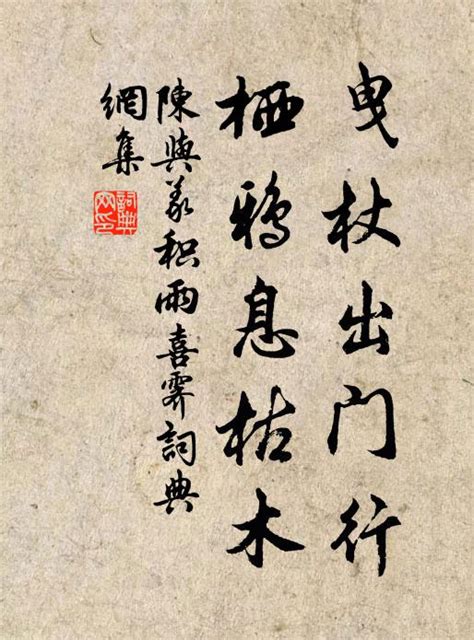 曳杖出门行
栖鸦息枯木
陳與義积雨喜霽詞典
網集
詞典网印